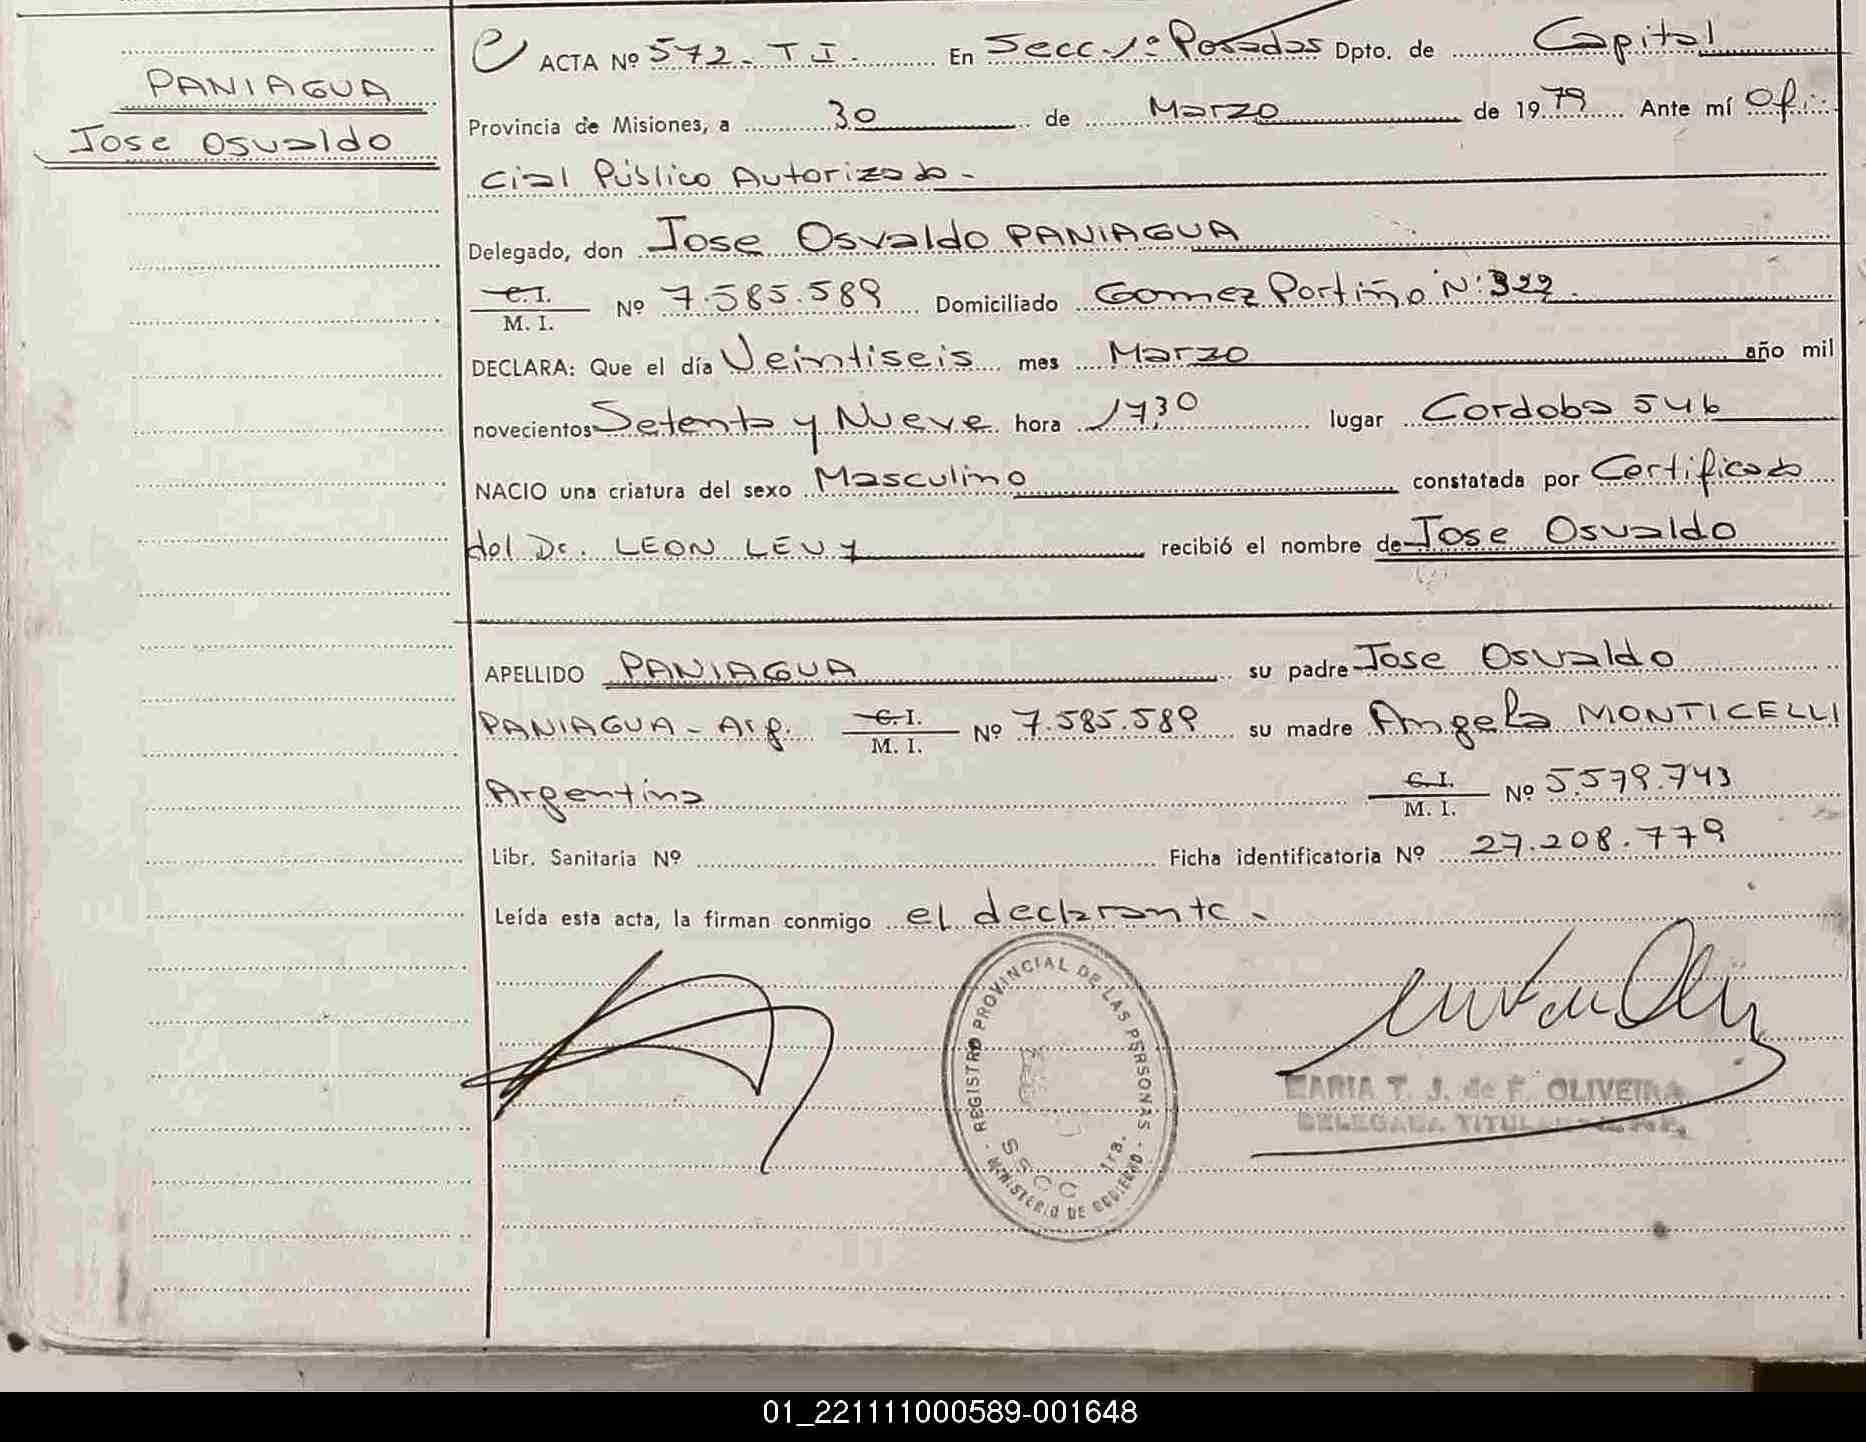 PANIAGUA
Jose Osvaldo
ACTA Nº 572 - T I. En Secc. 1º Posadas Dpto. de Capital
Provincia de Misiones, a 30 de Marzo de 1979 Ante mí Ofi-
cial Público Autorizado -
Delegado, don Jose Osvaldo PANIAGUA
C. I.
M. I. Nº 7.585.589 Domiciliado Gomez Portiño Nº 322.
DECLARA: Que el día Veintiseis mes Marzo año mil
novecientos Setenta y Nueve hora 17,30 lugar Cordoba 546
NACIO una criatura del sexo Masculino constatada por Certificado
del Dr. LEON LEVY recibió el nombre de Jose Osvaldo
APELLIDO PANIAGUA su padre Jose Osvaldo
PANIAGUA - Arg. C. I. M. I. Nº 7.585.589 su madre Angela MONTICELLI
Argentina C. I. M. I. Nº 5.579.743
Libr. Sanitaria Nº Ficha identificatoria Nº 27.208.779
Leída esta acta, la firman conmigo el declarante -
REGISTRO PROVINCIAL DE LAS PERSONAS
SSCC 1ra.
MINISTERIO DE GOBIERNO
MARIA T. J. de F. OLIVEIRA
DELEGADA TITULAR
01_221111000589-001648